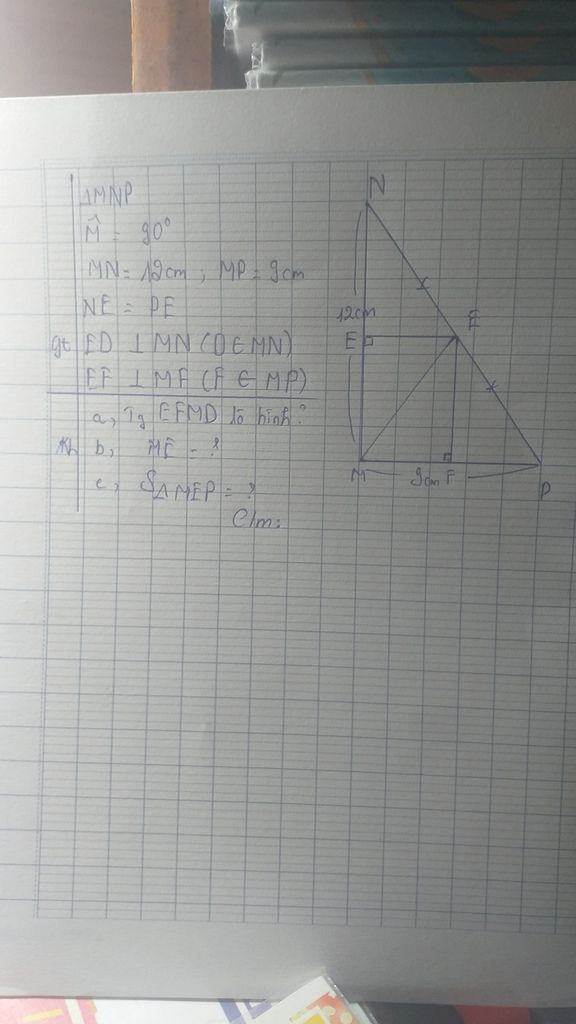 ΔMNP
M̂ = 90°
MN = 12cm , MP = 9cm
NE = PE
gt ED ⊥ MN (D ∈ MN)
EF ⊥ MF (F ∈ MP)
a, Tg EFMD là hình?
kl b, ME = ?
c, SΔMEP = ?
C/m:
N
12cm
E
E
M
9cm F
P